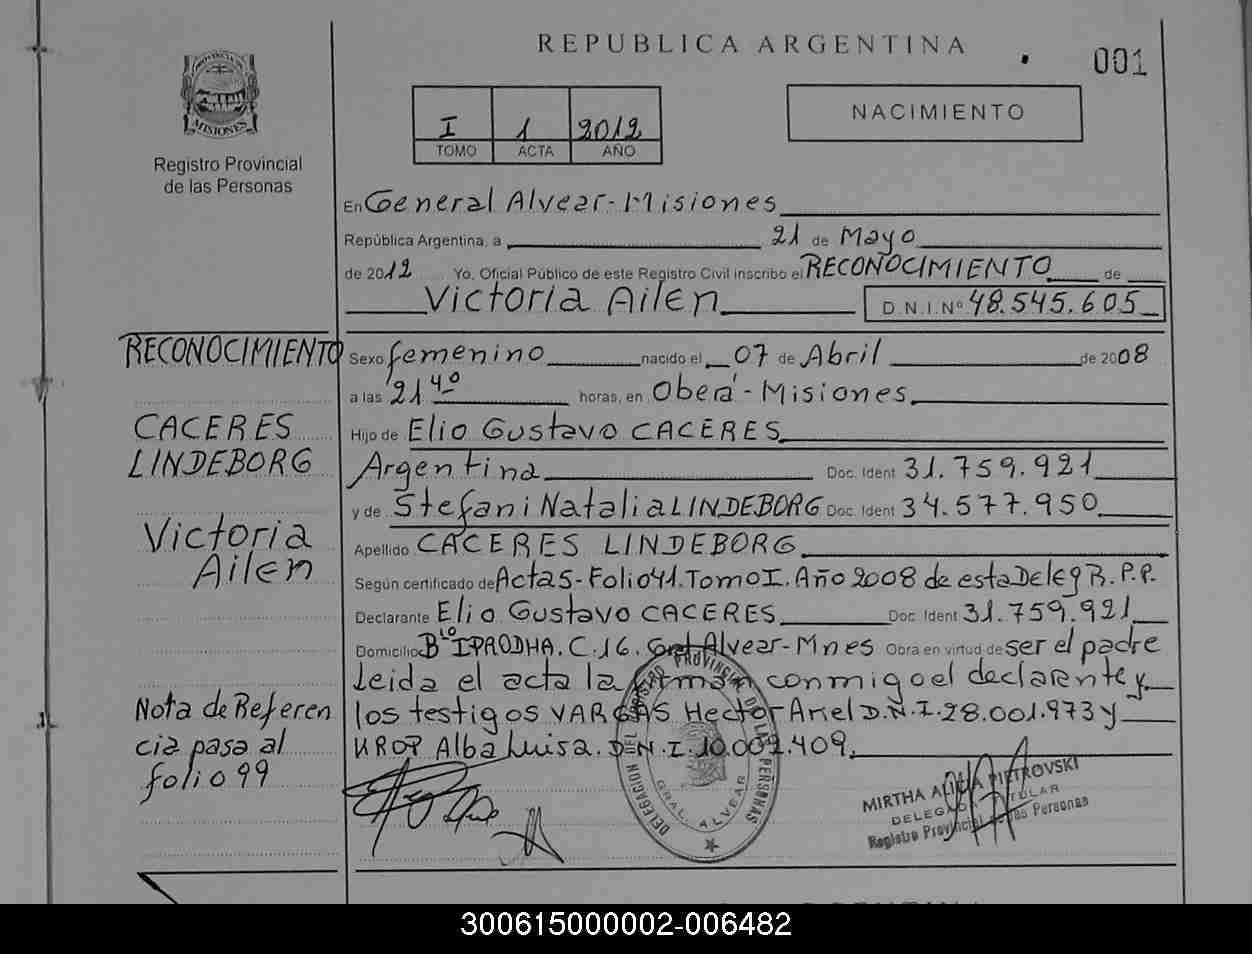 REPUBLICA ARGENTINA
001
PROVINCIA DE
MISIONES
Registro Provincial
de las Personas
I 1 2012
TOMO ACTA AÑO
NACIMIENTO
En General Alvear - Misiones
República Argentina, a 21 de Mayo
de 2012 Yo. Oficial Público de este Registro Civil inscribo el RECONOCIMIENTO de
Victoria Ailen D.N.I.Nº 48.545.605
RECONOCIMIENTO
CACERES
LINDEBORG
Victoria
Ailen
Nota de Referen
cia pasa al
folio 99
Sexo femenino nacido el 07 de Abril de 2008
a las 21 40 horas, en Oberá - Misiones
Hijo de Elio Gustavo CACERES
Argentina Doc. Ident 31.759.921
y de Stefani Natalia LINDEBORG Doc. Ident 34.577.950
Apellido CACERES LINDEBORG
Según certificado de Acta 5- Folio 41. Tomo I. Año 2008 de esta Deleg R.P.P.
Declarante Elio Gustavo CACERES Doc. Ident 31.759.921
Domicilio Bº IPRODHA. C.16. Gral Alvear - Mnes Obra en virtud de ser el padre
Leida el acta la firman conmigo el declarante y
los testigos VARGAS Hector Ariel D.N.I. 28.001.973 y
Alba Luisa. D.N.I. 10.001.409.
DELEGACION DEL REGISTRO PROVINCIAL DE LAS PERSONAS
GRAL. ALVEAR
MIRTHA ALICIA PIETROVSKI
DELEGADA TITULAR
Registro Provincial de las Personas
300615000002-006482